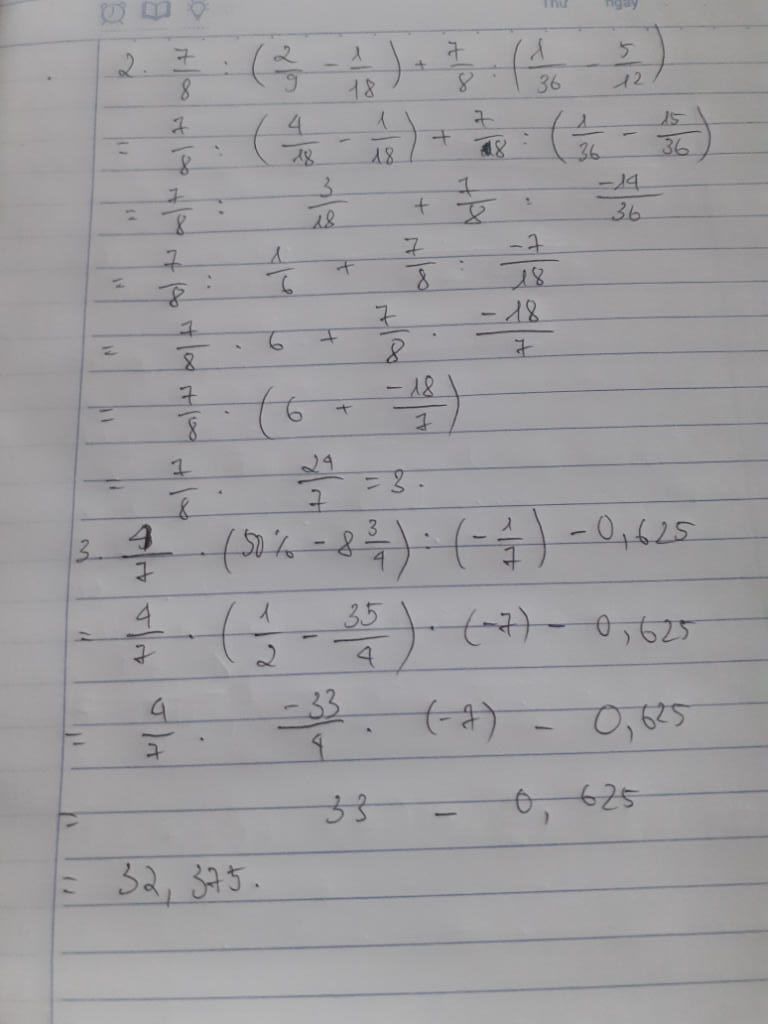 Thứ ngày
2. 7/8 : (2/9 - 1/18) + 7/8 : (1/36 - 5/12)
= 7/8 : (4/18 - 1/18) + 7/8 : (1/36 - 15/36)
= 7/8 : 3/18 + 7/8 : -14/36
= 7/8 : 1/6 + 7/8 : -7/18
= 7/8 . 6 + 7/8 . -18/7
= 7/8 . (6 + -18/7)
= 7/8 . 24/7 = 3.
3. 4/7 . (50% - 8 3/4) : (-1/7) - 0,625
= 4/7 . (1/2 - 35/4) . (-7) - 0,625
= 4/7 . -33/4 . (-7) - 0,625
= 33 - 0,625
= 32,375.